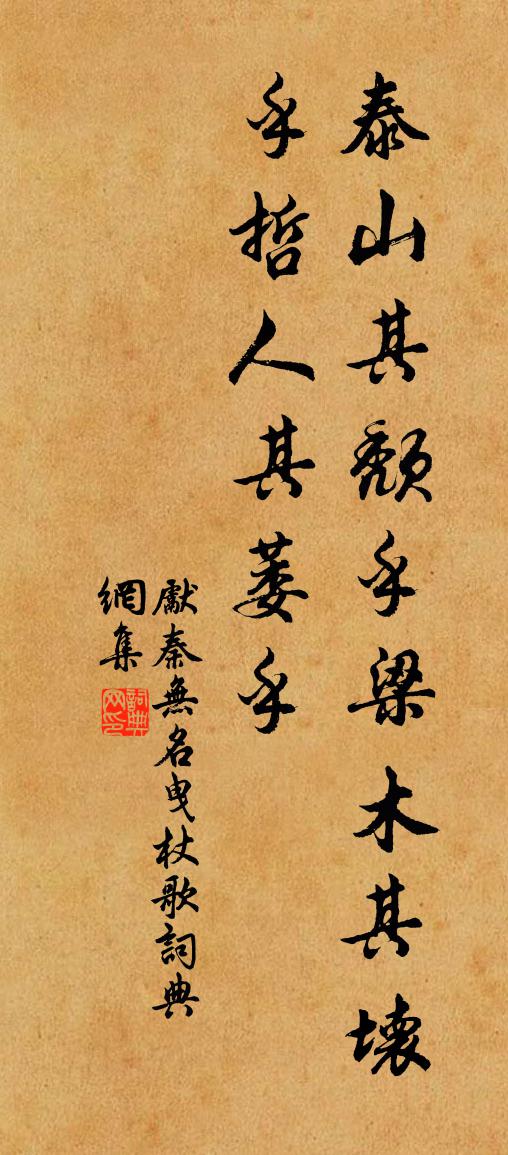 泰山其頹乎梁木其壞
乎哲人其萎乎
獻秦無名曳杖歌詞典
網集
詞典
网印